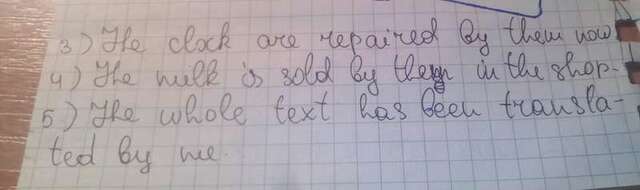 3) The clock are repaired by them now.
4) The milk is sold by them in the shop.
5) The whole text has been transla-
ted by me.